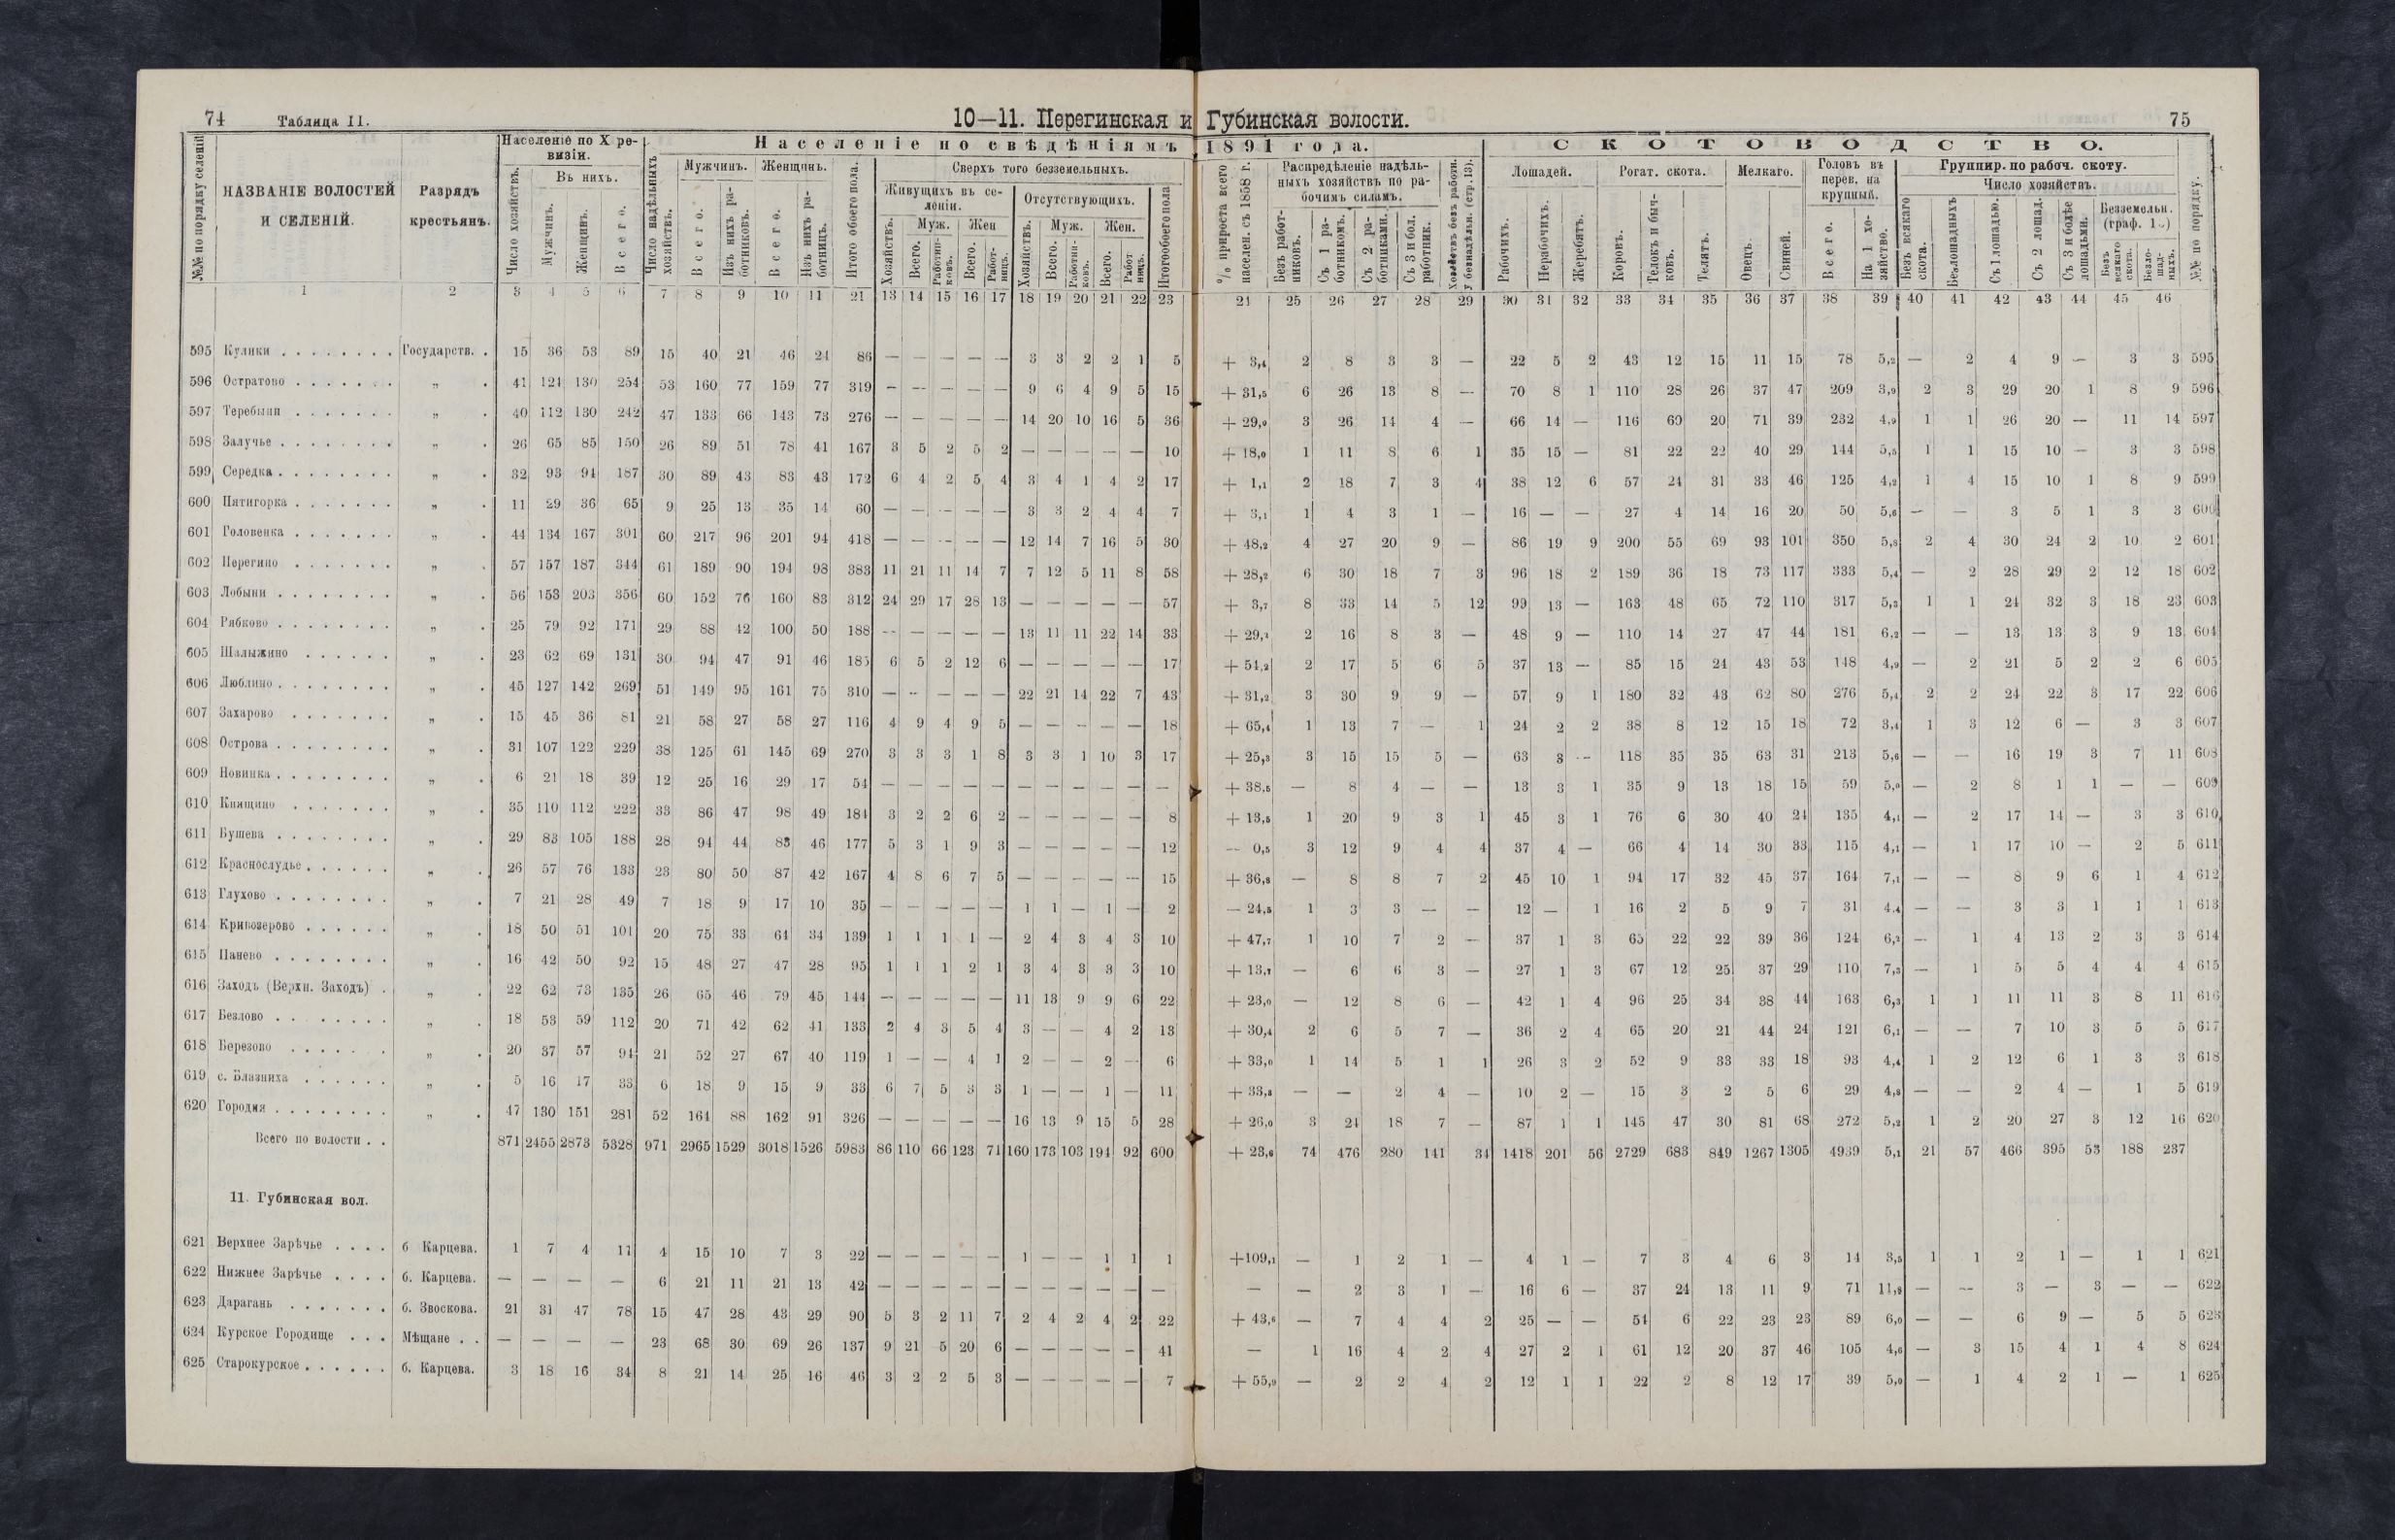 74 Таблица II. 10—11. Перегинская и Губинская волости. 75
№№ по порядку селеній
НАЗВАНІЕ ВОЛОСТЕЙ И СЕЛЕНІЙ.
Разрядъ крестьянъ.
Населеніе по X ревизіи.
Число хозяйствъ.
Въ нихъ.
Мужчинъ. Женщинъ. Всего.
Населеніе по свѣдѣніямъ 1891 года.
Число надѣльныхъ хозяйствъ.
Мужчинъ. Женщинъ.
Всего. Изъ нихъ работниковъ. Всего. Изъ нихъ работницъ. Итого обоего пола.
Сверхъ того безземельныхъ.
Живущихъ въ селеніи. Отсутствующихъ.
Муж. Жен Муж. Жен.
Хозяйствъ. Всего. Работниковъ. Всего. Работницъ. Хозяйствъ. Всего. Работниковъ. Всего. Работницъ. Итого обоего пола
% прироста всего населен. съ 1858 г.
Распредѣленіе надѣльныхъ хозяйствъ по рабочимъ силамъ.
Безъ работниковъ. Съ 1 работникомъ. Съ 2 работниками. Съ 3 и бол. работник.
Хозяйствъ безъ работн. у безнадѣльн. (стр. 13).
СКОТОВОДСТВО.
Лошадей. Рогат. скота. Мелкаго. Головъ въ перев. на крупный. Группир. по рабоч. скоту.
Число хозяйствъ.
Рабочихъ. Нерабочихъ. Жеребятъ. Коровъ. Телокъ и бычковъ. Телятъ. Овецъ. Свиней. Всего. На 1 хозяйство. Безъ всякаго скота. Безлошадныхъ Съ 1 лошадью. Съ 2 лошад. Съ 3 и болѣе лошадьми.
Безземельн. (граф. 1
Безъ всякаго скота. Безлошадныхъ. №№ по порядку.
1 2 3 4 5 6 7 8 9 10 11 21 13 14 15 16 17 18 19 20 21 22 23 21 25 26 27 28 29 30 31 32 33 34 35 36 37 38 39 40 41 42 43 44 45 46
595 Кулики Государств. 15 36 53 89 15 40 21 46 24 86 — — — — — 3 3 2 2 1 5 + 3,4 2 8 3 3 — 22 5 2 43 12 15 11 15 78 5,2 — 2 4 9 — 3 3 595
596 Остратово „ 41 124 130 254 53 160 77 159 77 319 — — — — — 9 6 4 9 5 15 + 31,5 6 26 13 8 — 70 8 1 110 28 26 37 47 209 3,9 2 3 29 20 1 8 9 596
597 Теребыни „ 40 112 130 242 47 133 66 143 73 276 — — — — — 14 20 10 16 5 36 + 29,0 3 26 14 4 — 66 14 — 116 60 20 71 39 232 4,9 1 1 26 20 — 11 14 597
598 Залучье „ 26 65 85 150 26 89 51 78 41 167 3 5 2 5 2 — — — — — 10 + 18,0 1 11 8 6 1 35 15 — 81 22 22 40 29 144 5,5 1 1 15 10 — 3 3 598
599 Середка „ 32 93 94 187 30 89 43 83 43 172 6 4 2 5 4 3 4 1 4 2 17 + 1,1 2 18 7 3 4 38 12 6 57 24 31 33 46 125 4,2 1 4 15 10 1 8 9 599
600 Пятигорка „ 11 29 36 65 9 25 13 35 14 60 — — — — — 3 3 2 4 4 7 + 3,1 1 4 3 1 — 16 — — 27 4 14 16 20 50 5,6 — — 3 5 1 3 3 600
601 Головенка „ 44 134 167 301 60 217 96 201 94 418 — — — — — 12 14 7 16 5 30 + 48,2 4 27 20 9 — 86 19 9 200 55 69 93 101 350 5,8 2 4 30 24 2 10 2 601
602 Перегино „ 57 157 187 344 61 189 90 194 98 383 11 21 11 14 7 7 12 5 11 8 58 + 28,2 6 30 18 7 3 96 18 2 189 36 18 73 117 333 5,4 — 2 28 29 2 12 18 602
603 Лобыни „ 56 153 203 356 60 152 76 160 83 312 24 29 17 28 13 — — — — — 57 + 3,7 8 33 14 5 12 99 13 — 163 48 65 72 110 317 5,3 1 1 24 32 3 18 23 603
604 Рябково „ 25 79 92 171 29 88 42 100 50 188 — — — — — 13 11 11 22 14 33 + 29,2 2 16 8 3 — 48 9 — 110 14 27 47 44 181 6,2 — — 13 13 3 9 13 604
605 Шалыжино „ 23 62 69 131 30 94 47 91 46 185 6 5 2 12 6 — — — — — 17 + 54,2 2 17 5 6 5 37 13 — 85 15 24 43 53 148 4,9 — 2 21 5 2 2 6 605
606 Люблино „ 45 127 142 269 51 149 95 161 75 310 — — — — — 22 21 14 22 7 43 + 31,2 3 30 9 9 — 57 9 1 180 32 43 62 80 276 5,4 2 2 24 22 3 17 22 606
607 Захарово „ 15 45 36 81 21 58 27 58 27 116 4 9 4 9 5 — — — — — 18 + 65,4 1 13 7 — 1 24 2 2 38 8 12 15 18 72 3,4 1 3 12 6 — 3 3 607
608 Острова „ 31 107 122 229 38 125 61 145 69 270 3 3 3 1 8 3 3 1 10 3 17 + 25,3 3 15 15 5 — 63 8 — 118 35 35 63 31 213 5,6 — — 16 19 3 7 11 608
609 Новинка „ 6 21 18 39 12 25 16 29 17 54 — — — — — — — — — — — + 38,5 — 8 4 — — 13 3 1 35 9 13 18 15 59 5,0 — 2 8 1 1 — — 609
610 Княщино „ 35 110 112 222 33 86 47 98 49 184 3 2 2 6 2 — — — — — 8 + 13,5 1 20 9 3 1 45 3 1 76 6 30 40 24 135 4,1 — 2 17 14 — 3 3 610
611 Бушева „ 29 83 105 188 28 94 44 83 46 177 5 3 1 9 3 — — — — — 12 — 0,5 3 12 9 4 4 37 4 — 66 4 14 30 33 115 4,1 — 1 17 10 — 2 5 611
612 Краснослудье „ 26 57 76 133 23 80 50 87 42 167 4 8 6 7 5 — — — — — 15 + 36,8 — 8 8 7 2 45 10 1 94 17 32 45 37 164 7,1 — — 8 9 6 1 4 612
613 Глухово „ 7 21 28 49 7 18 9 17 10 35 — — — — — 1 1 — 1 — 2 — 24,5 1 3 3 — — 12 — 1 16 2 5 9 7 31 4,4 — — 3 3 1 1 1 613
614 Кривозерово „ 18 50 51 101 20 75 33 64 34 139 1 1 1 1 — 2 4 3 4 3 10 + 47,7 1 10 7 2 — 37 1 3 65 22 22 39 36 124 6,2 — 1 4 13 2 3 3 614
615 Панево „ 16 42 50 92 15 48 27 47 28 95 1 1 1 2 1 3 4 3 3 3 10 + 13,7 — 6 6 3 — 27 1 3 67 12 25 37 29 110 7,3 — 1 5 5 4 4 4 615
616 Заходъ (Верхн. Заходъ) „ 22 62 73 135 26 65 46 79 45 144 — — — — — 11 13 9 9 6 22 + 23,0 — 12 8 6 — 42 1 4 96 25 34 38 44 163 6,3 1 1 11 11 3 8 11 616
617 Безлово „ 18 53 59 112 20 71 42 62 41 133 2 4 3 5 4 3 — — 4 2 13 + 30,4 2 6 5 7 — 36 2 4 65 20 21 44 24 121 6,1 — — 7 10 3 5 5 617
618 Березово „ 20 37 57 94 21 52 27 67 40 119 1 — — 4 1 2 — — 2 — 6 + 33,0 1 14 5 1 1 26 3 2 52 9 33 33 18 93 4,4 1 2 12 6 1 3 3 618
619 с. Блазниха „ 5 16 17 33 6 18 9 15 9 33 6 7 5 3 3 1 — — 1 — 11 + 33,3 — — 2 4 — 10 2 — 15 3 2 5 6 29 4,8 — — 2 4 — 1 5 619
620 Городня „ 47 130 151 281 52 164 88 162 91 326 — — — — — 16 13 9 15 5 28 + 26,0 3 24 18 7 — 87 1 1 145 47 30 81 68 272 5,2 1 2 20 27 3 12 16 620
Всего по волости 871 2455 2873 5328 971 2965 1529 3018 1526 5983 86 110 66 123 71 160 173 103 194 92 600 + 23,6 74 476 280 141 34 1418 201 56 2729 683 849 1267 1305 4939 5,1 21 57 466 395 53 188 237
11. Губинская вол.
621 Верхнее Зарѣчье б Карцева. 1 7 4 11 4 15 10 7 3 22 — — — — — 1 — — 1 1 1 +109,1 — 1 2 1 — 4 1 — 7 3 4 6 3 14 3,5 1 1 2 1 — 1 1 621
622 Нижнее Зарѣчье б. Карцева. — — — — 6 21 11 21 13 42 — — — — — — — — — — — — — 2 3 1 — 16 6 — 37 24 13 11 9 71 11,8 — — 3 — 3 — — 622
623 Дарагань б. Звоскова. 21 31 47 78 15 47 28 43 29 90 5 3 2 11 7 2 4 2 4 2 22 + 43,6 — 7 4 4 2 25 — — 54 6 22 23 23 89 6,0 — — 6 9 — 5 5 623
624 Курское Городище Мѣщане — — — — 23 68 30 69 26 137 9 21 5 20 6 — — — — — 41 — 1 16 4 2 4 27 2 1 61 12 20 37 46 105 4,6 — 3 15 4 1 4 8 624
625 Старокурское б. Карцева. 3 18 16 34 8 21 14 25 16 46 3 2 2 5 3 — — — — — 7 + 55,9 — 2 2 4 2 12 1 1 22 2 8 12 17 39 5,0 — 1 4 2 1 — 1 625